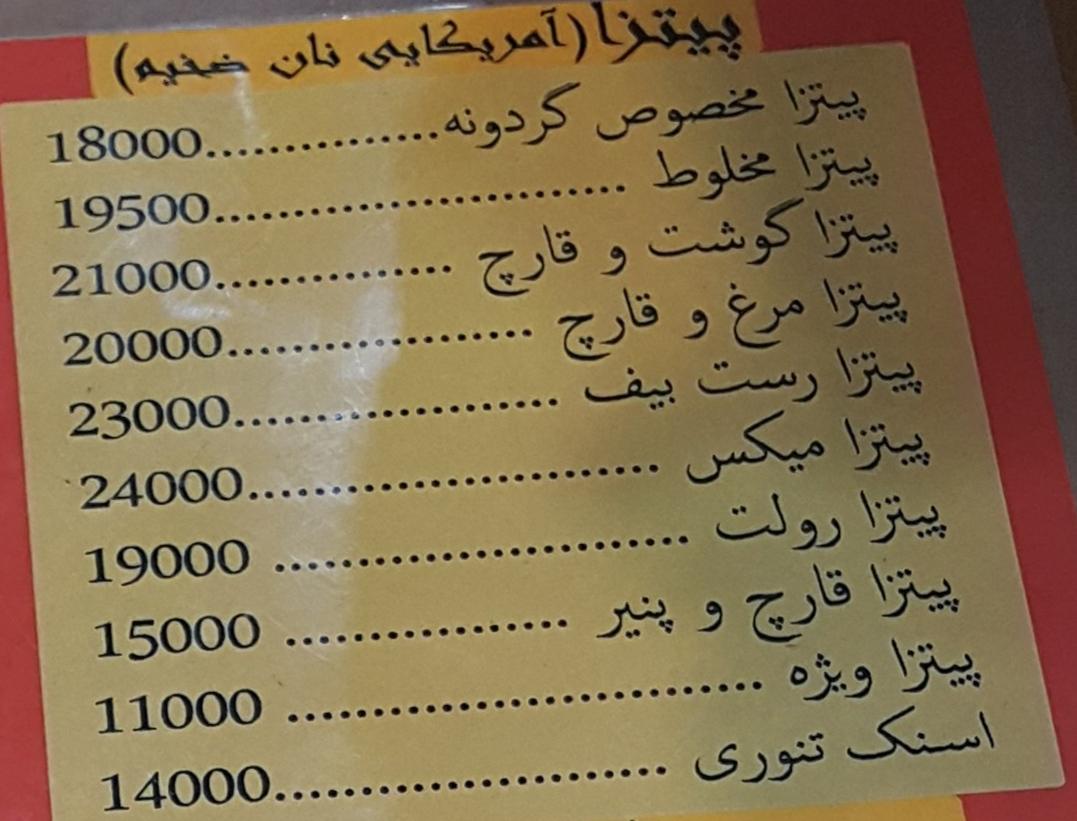 پیتزا (آمریکایی نان ضخیم)
پیتزا مخصوص گردونه...............18000
پیتزا مخلوط ..........................19500
پیتزا گوشت و قارچ ...............21000
پیتزا مرغ و قارچ ...................20000
پیتزا رست بیف .....................23000
پیتزا میکس ..........................24000
پیتزا رولت .......................... 19000
پیتزا قارچ و پنیر ................. 15000
پیتزا ویژه ............................. 11000
اسنک تنوری .........................14000